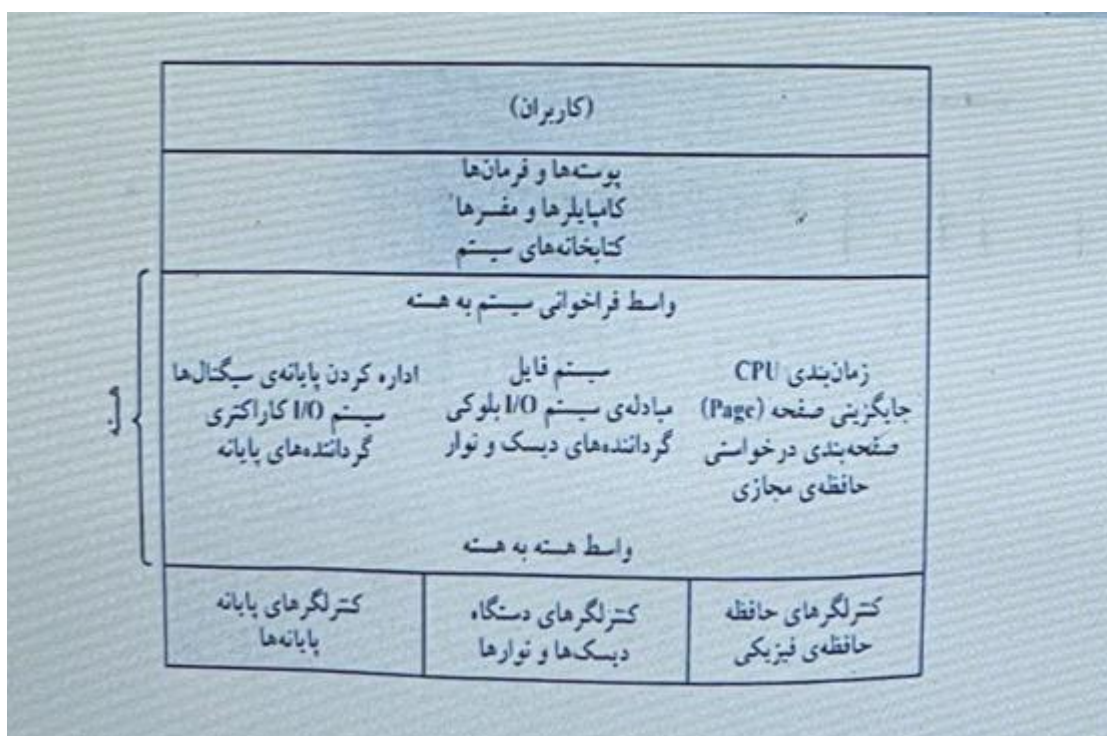 (کاربران)
پوسته‌ها و فرمان‌ها
کامپایلرها و مفسرها
کتابخانه‌های سیستم
واسط فراخوانی سیستم به هسته
هسته
زمان‌بندی CPU
جایگزینی صفحه (Page)
صفحه‌بندی درخواستی
حافظه‌ی مجازی
سیستم فایل
مبادله‌ی سیستم I/O بلوکی
گرداننده‌های دیسک و نوار
اداره کردن پایانه‌ی سیگنال‌ها
سیستم I/O کاراکتری
گرداننده‌های پایانه
واسط هسته به هسته
کنترلگرهای حافظه
حافظه‌ی فیزیکی
کنترلگرهای دستگاه
دیسک‌ها و نوارها
کنترلگرهای پایانه
پایانه‌ها